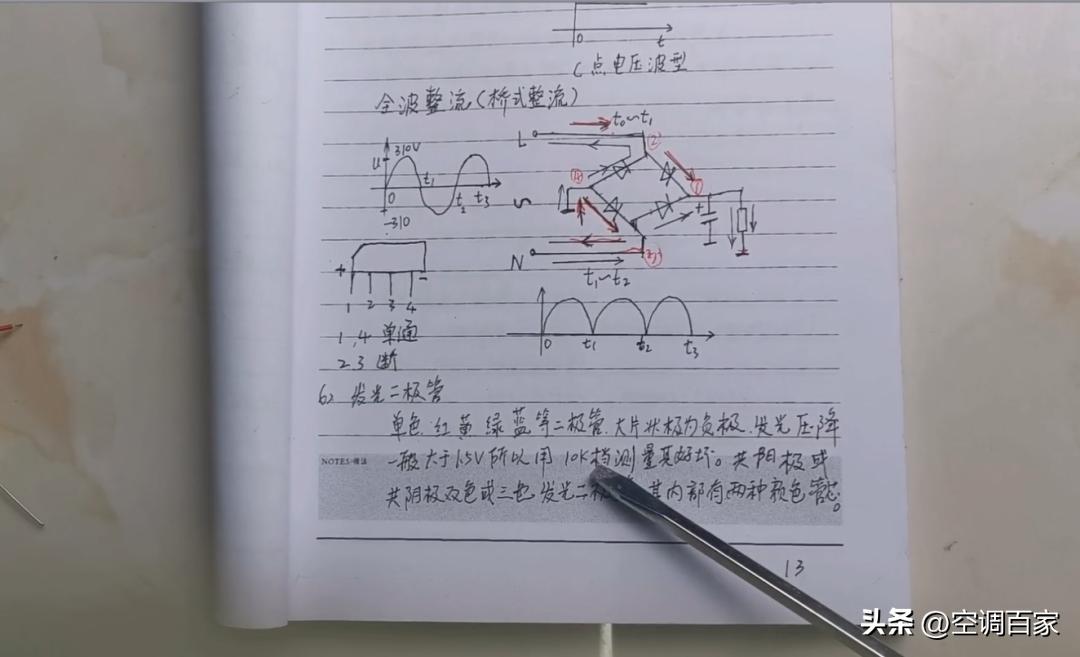 0 t
C点电压波型
全波整流(桥式整流)
t₀~t₁
L
②
u 310V
0 t₁ t₂ t₃
-310
④
①
+
~
N
③
t₁~t₂
+ -
1 2 3 4
1,4 单通
2 3 断
0 t₁ t₂ t₃
6> 发光二极管
单色.红黄绿蓝等二极管.大片状极为负极.发光压降
一般大于1.5V所以用10K档测量其好坏。共阳极或
共阴极双色或三色发光二极 其内部有两种颜色管芯。
NOTES·备注
13
头条 @空调百家